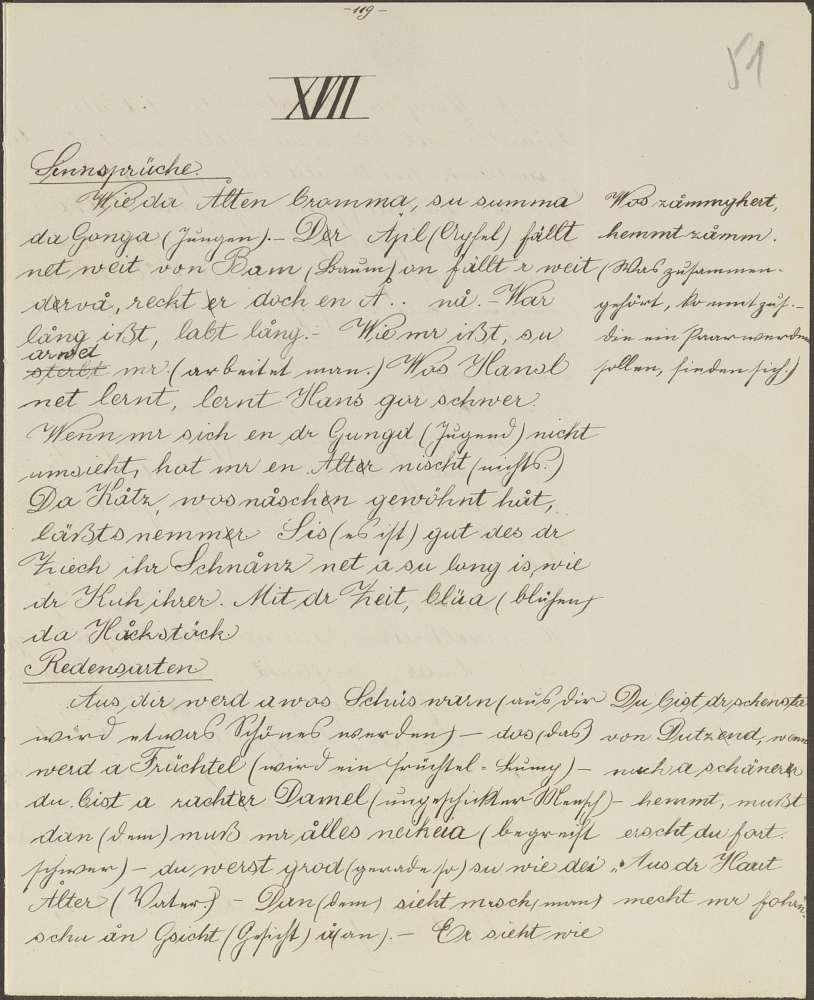 -119-
51
XVII
Sinnsprüche.
Wie da Alten bromma, su summa
da Gonga (Jungen). - Der Äpil (Apfel) fällt
net weit von Bam (Baum) on fällt r weit
dervå, reckt er doch en A.. nå. - War
lång ißt, labt lång. - Wie mr ißt, su
arwet
sterbt mr. (arbeitet man.) Wos Hansl
net lernt, lernt Hans gor schwer.
Wenn mr sich en dr Gungd (Jugend) nicht
umsieht, hot mr en Alter nischt (nichts.)
Da Kåtz, wos nåschen gewöhnt håt,
läßts nemmer. Sis (es ist) gut des dr
Ziech ihr Schnånz net a su long is, wie
dr Kuh ihrer. Mit dr Zeit, bläa (blühen)
da Håckstöck
Wos zåmmghert,
kemmt zåmm.
(Was zusammen-
gehört, kommt zus. -
die ein Paar werden
sollen, finden sich.)
Redensarten
Aus dir werd a wos Schüs warn (aus dir
wird etwas Schönes werden) - dos (das)
werd a Früchtel (wird ein Früchtel = Lump) -
du bist a rachter Damel (ungeschickter Mensch) -
dan (dem) muß mr ålles neikeia (begreift
schwer) - du werst grod (gerade so) su wie dei
Ålter (Vater.) - Dan (dem) sieht mrsch (man)
schu ån Gsicht (Gesicht) å (an). - Er sieht wie
Du bist dr schensta
von Dutzend, wenn
noch a schänerer
kemmt, mußt
erscht du fort.
"Aus dr Haut
mecht mr fohrn.